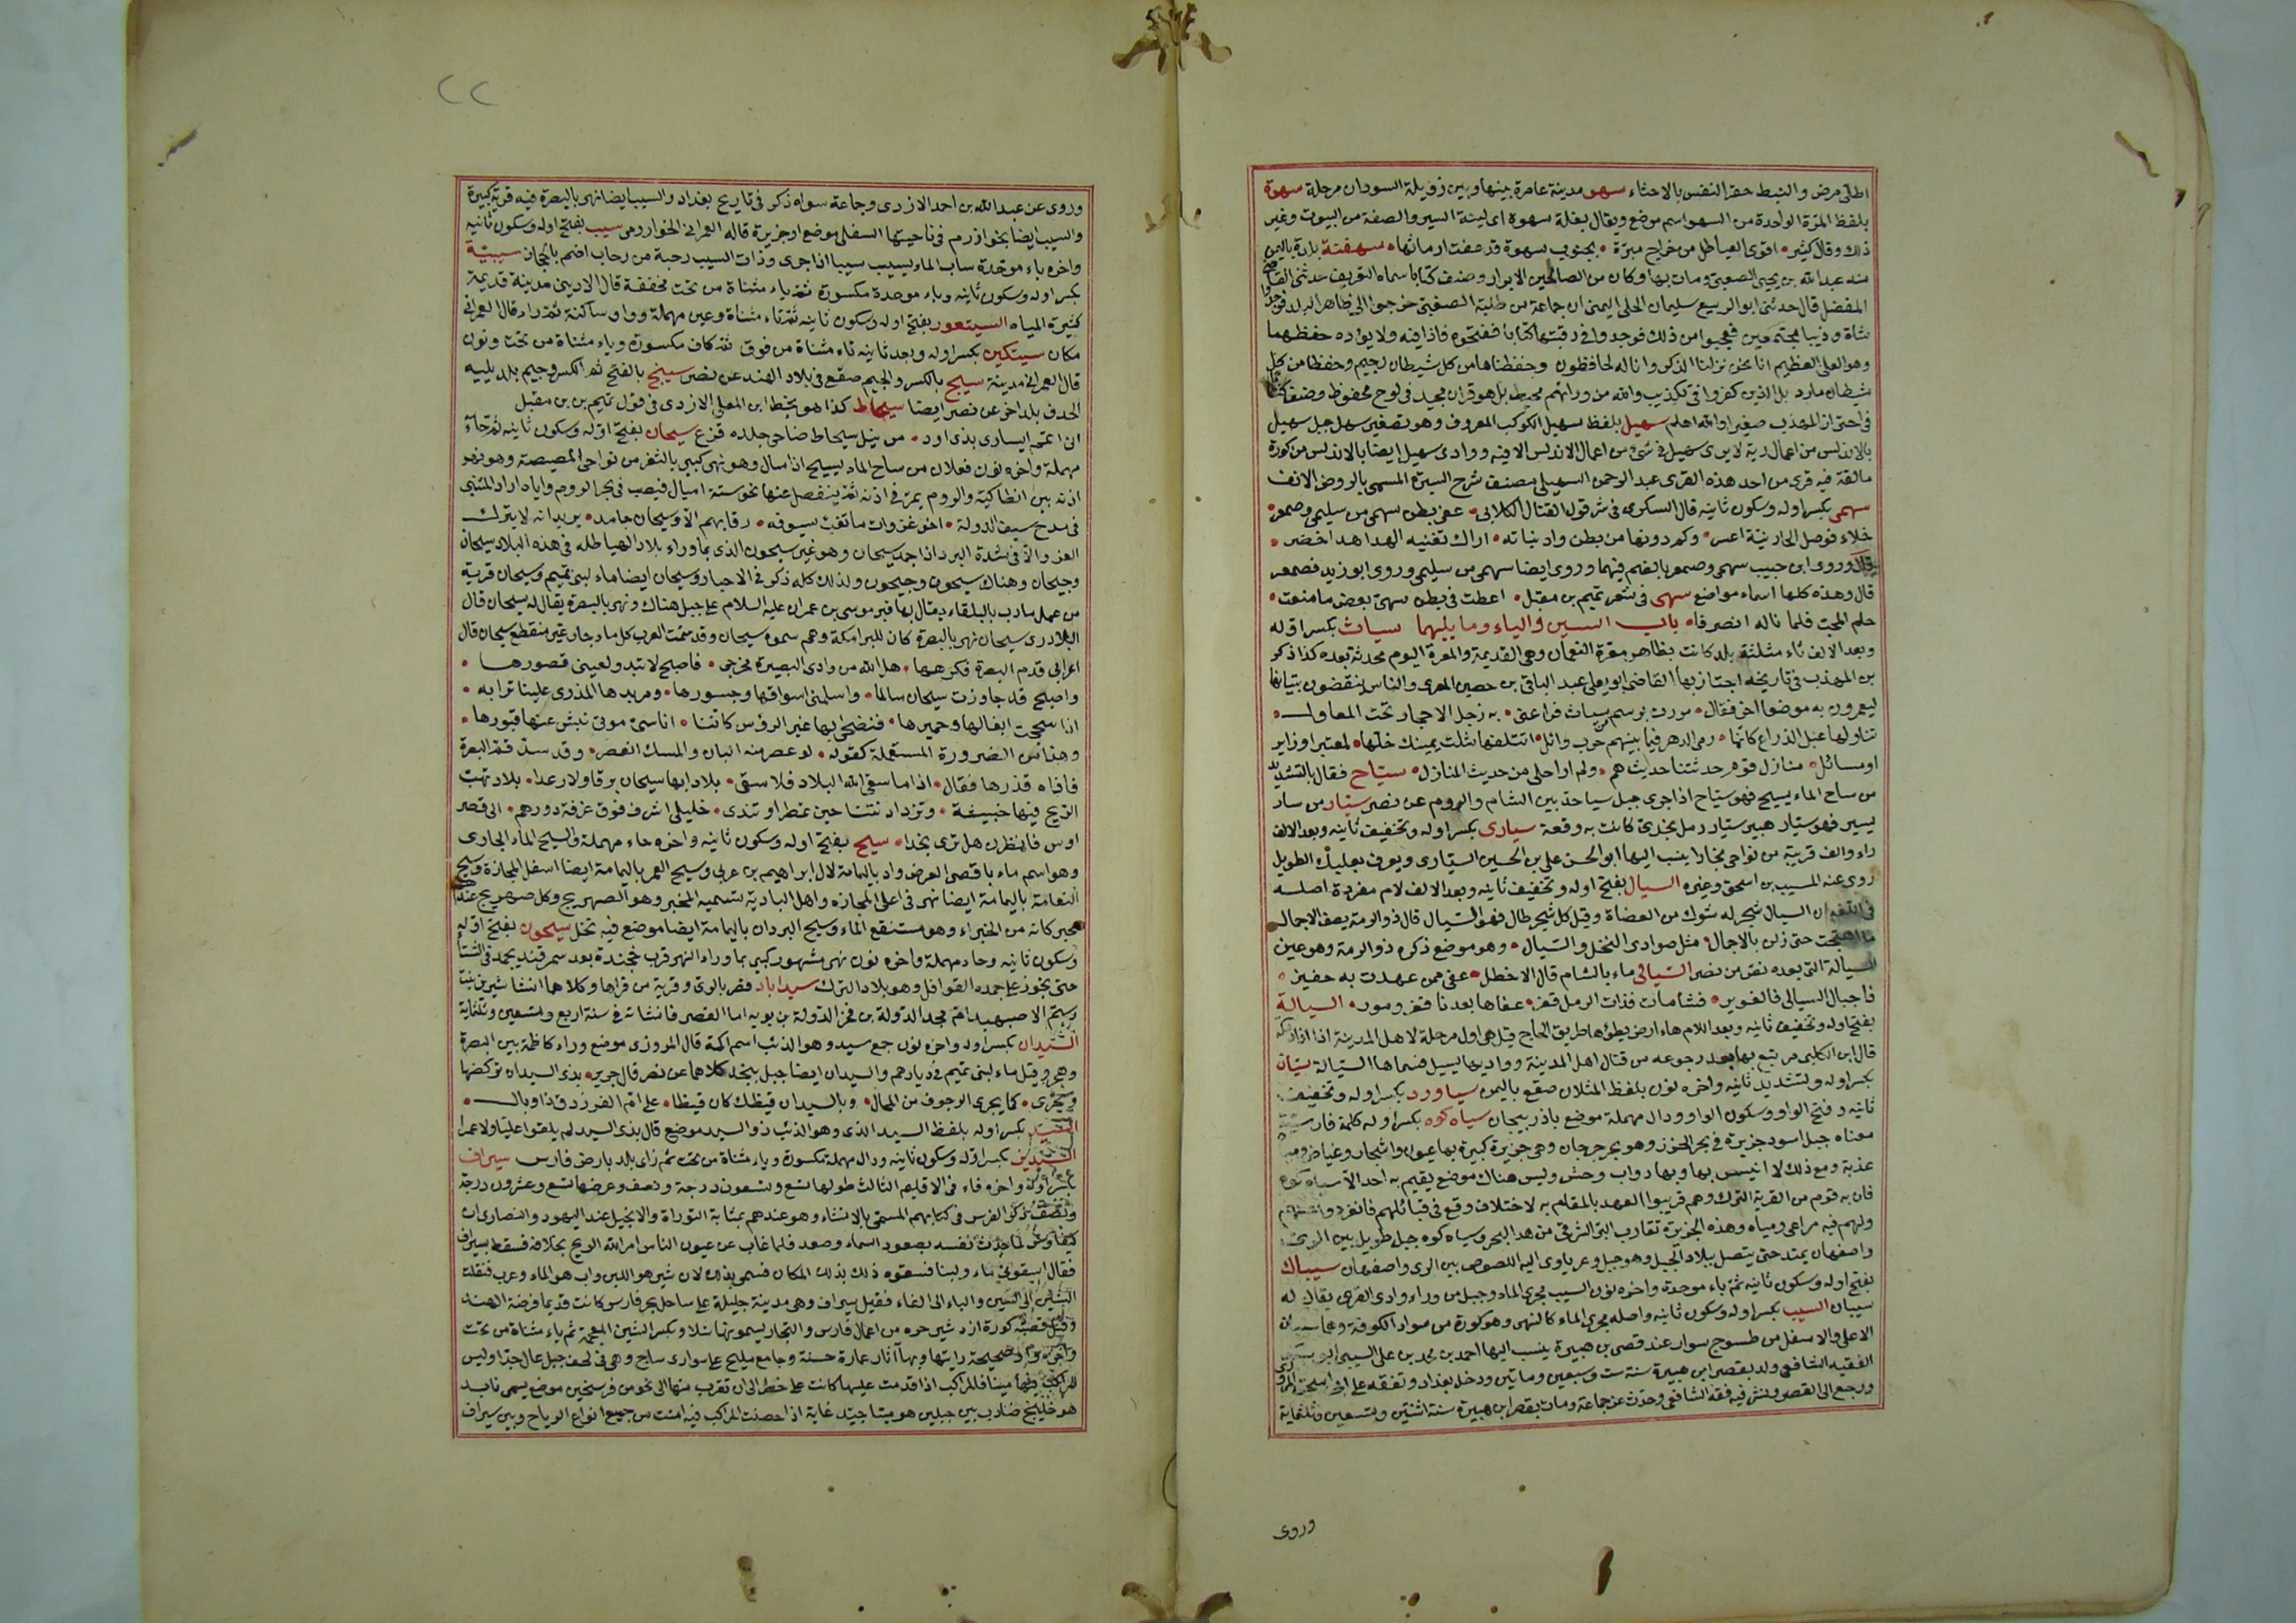 اطلى مرض والنبط حقر النفس بالاحثاء سهو مدينة عامرة بينها وبين زويلة السودان مرحلة سهوة
بلفظ المرة الواحدة من السهو اسم موضع ويقال بغلة سهوة اى لينة السير والصفة من البيوت وغير
ذلك وقال كثير اقوى الغياطل من حراج مبرة بجنوب سهوة قد عفت ارماثها سهفنة بلدة باليمن
منه عبدالله بن يحيى الصعبى ومات بها وكان من الصالحين الابرار وصنف كتابا سماه التعريف حدثنى القاضى
المفضل قال حدثنى ابو الربيع سليمان الحلى اليمنى ان جماعة من طلبة الصعبى خرجوا الى ظاهر البلد فوجدوا
شاة وذيبا مجتمعين فعجبوا من ذلك فوجدوا فى رقبتها كتابا ففتحوه فاذا فيه ولا يؤده حفظهما
وهو العلى العظيم انا نحن نزلنا الذكر وانا له لحافظون وحفظناها من كل شيطان رجيم وحفظا من كل
شيطان مارد بل الذين كفروا فى تكذيب والله من ورائهم محيط بل هو قران مجيد فى لوح محفوظ
سهيل بلفظ سهيل الكوكب المعروف وهو تصغير سهل جبل سهيل
بالاندلس من اعمال رية لا يرى سهيل فى شئ من اعمال الاندلس الا فيه ووادى سهيل ايضا بالاندلس من كورة
مالقة فيه قرى من احد هذه القرى عبد الرحمن السهيلى مصنف شرح السيرة المسمى بالروض الانف
سهمى بكسر اوله وسكون ثانيه قال السكرى فى شرح قول القتال الكلابى عفى بطن سهمى من سليمى وصمعر
خلاء فوصل الحارثية اعسر وكم دونها من بطن واد نباته اراك تغنيه الهداهد اخضر
قال وروى ابن حبيب سهمى وصمعر بالضم فيهما وروى ايضا سهمى من سليمى وروى ابو زيد فصمعر
قال وهذه كلها اسماء مواضع سهى فى شعر تميم بن مقبل اعطت فى بطن سهى بعض ما منعت
حكم المحب فلما ناله انصرفا باب السين والياء وما يليهما سياث بكسر اوله
وبعد الالف ثاء مثلثة بلد كانت بظاهر معرة النعمان وهى القديمة والمعرة اليوم محدثة بعده كذا ذكر
بن المهذب فى تاريخه اجتاز بها القاضى ابو يعلى عبد الباقى بن حصين المعرى والناس ينقضون بنيانها
ليعمرون به موضعا اخر فقال مررت برسم من سياث فراعنى به زجل الاحجار تحت المعاول
تناولها عبل الذراع كانما رمى الدهر فيما بينهم حرب وائل اتتلفها شلت يمينك خلها لمعتبر او زاير
او مسائل منازل قوم حدثتنا حديثهم ولم ار احلى من حديث المنازل سياح فقال بالتشديد
من ساح الماء يسيح فهو سياح اذا جرى جبل سياح حد بين الشام والروم عن نصر سيار من سار
يسير فهو سيار هبير سيار رمل نجدى كانت به وقعة سيارى بكسر اوله وتخفيف ثانيه وبعد الالف
راء والف قرية من نواحى بخارا ينسب اليها ابو الحسن على بن الحسين السيارى ويعرف بعليك الطويل
روى عنه المسيب بن اسحق وغيره السيال بفتح اوله وتخفيف ثانيه وبعد الالف لام مفردة اصله
ان السيال شجر له شوك من العضاة وقيل كل شجر طال فهو السيال قال ذو الرمة يصف الاجمال
حتى زلن بالاجمال مثل صوادى النخل والسيال وهو موضع ذكره ذو الرمة وهو عين
السيالة التى بعده نص من نصر السيالى ماء بالشام قال الاخطل عفى ممن عهدت به حفير
فاجبال السيالى فالغوير فشامات فذات الرمل قفر عفاها بعدنا قفر ومور السيالة
بفتح اوله وتخفيف ثانيه وبعد اللام هاء ارض يطؤها طريق الحاج قيل هى اول مرحلة لاهل المدينة اذا ارادوا مكة
قال ابن الكلبى مر تبع بها بعد رجوعه من قتال اهل المدينة وواديها يسيل فسماها السيالة سيان
بكسر اوله وتشديد ثانيه واخره نون بلفظ المثلان صقع باليمن سياورد بكسر اوله وتخفيف
ثانيه وفتح الواو وسكون الواو ودال مهملة موضع باذربيجان سياه كوه بكسر اوله كلمة فارسية
معناه جبل اسود جزيرة فى بحر الخزر وهو بحر جرجان وهى جزيرة كبيرة بها عيون واشجار وغياض ومياه
عذبة ومع ذلك لا انيس بها وبها دواب وحش وليس هناك موضع يقيم به احد الا سياه كوه
فان به قوم من القرية الترك وهم قريبوا العهد بالمقام به لاختلاف وقع فى قبائلهم فانفردوا عنهم
ولهم فيه مراعى ومياه وهذه الجزيرة تقارب البر الشرقى من هذا البحر وسياه كوه جبل طويل بين الرى
واصفهان يمتد حتى يتصل ببلاد الجبل وهو جبل وعر ياوى اليه اللصوص بين الرى واصفهان سيبان
بفتح اوله وسكون ثانيه ثم باء موحدة واخره نون السيب مجرى الماء وجبل من وراء وادى القرى يقال له
سيبان السيب بكسر اوله وسكون ثانيه واصله مجرى الماء كالنهر وهو كورة من سواد الكوفة وهما سيبان
الاعلى والاسفل من طسوج سوار عند قصر بن هبيرة ينسب اليها احمد بن محمد بن على السيبى
الفقيه الشافعى ولد بقصر ابن هبيرة سنة ست وسبعين وماتين ودخل بغداد وتفقه على ابى اسحق المروزى
ورجع الى القصر ونشر فيه فقه الشافعى وحدث عن جماعة ومات بقصر ابن هبيرة سنة اثنتين وتسعين وثلثماية
وروى
٢٢
وروى عن عبد الله بن احمد الازدى وجماعة سواه ذكر فى تاريخ بغداد والسيب ايضا نهر بالبصرة فيه قرية كبيرة
والسيب ايضا بخوارزم فى ناحيتها السفلى موضع او جزيرة قاله العمرانى الخوارزمى سيب بفتح اوله وسكون ثانيه
واخره باء موحدة ساب الماء يسيب سيبا اذا جرى وذات السيب رحبة من رحاب اضم بالحجاز سيبية
بكسر اوله وسكون ثانيه وباء موحدة مكسورة ثم ياء مثناة من تحت مخففة قال الاديبى مدينة قديمة
كثيرة المياه السيتعور بفتح اوله وسكون ثانيه ثم تاء مثناة وعين مهملة وواو ساكنة ثم راء قال العمرانى
مكان سيتكين بكسر اوله وبعد ثانيه تاء مثناة من فوق ثم كاف مكسورة وياء مثناة من تحت ونون
قال العمرانى مدينة سيج بالكسر والجيم صقع فى بلاد الهند عن نصر سيج بالفتح ثم الكسر وجيم بلد يليه
الحدف بلد اخر عن نصر ايضا سيحاط كذا هو بخط ابن المعلى الازدى فى قول تميم بن مقبل
سيحان بفتح اوله وسكون ثانيه ثم حاء
مهملة واخره نون فعلان من ساح الماء يسيح اذا سال وهو نهر كبير بالثغر من نواحى المصيصة وهو نهر
اذنه بين انطاكية والروم يمر فى اذنه ثم ينفصل عنها نحو ستة اميال فيصب فى بحر الروم واياه اراد المتنبى
فى مدح سيف الدولة اخو غزوات ما تغب سيوفه رقابهم الا وسيحان جامد يريد انه لا يترك
الغزو الا فى شدة البرد اذا جمد سيحان وهو غير سيحون الذى بما وراء بلاد الهياطلة فى هذه البلاد سيحان
وجيحان وهناك سيحون وجيحون ولذلك كله ذكر فى الاخبار وسيحان ايضا ماء لبنى تميم وسيحان قرية
من عمل مادب بالبلقاء يقال بها قبر موسى بن عمران عليه السلام على جبل هناك ونهر بالبصرة يقال له سيحان قال
البلادرى سيحان نهر بالبصرة كان للبرامكة وهم سموه سيحان وقد سمت العرب كل ماء جار غير منقطع سيحان قال
اعرابى قدم البصرة فكرهها هل الله من وادى البصيرة مخرجى فاصبح لا تبدو لعينى قصورها
واصبح قد جاوزت سيحان سالما واسلمنى اسواقها وجسورها ومربدها المذرى علينا ترابه
اذا سحجت ابغالها وحميرها فنضحى بها غبر الرؤس كاننا اناسى موتى نبش عنها قبورها
وهذا من الضرورة المستعملة كقوله لو عصر منه البان والمسك انعصر وقد سن قدم البصرة
فاذاه قذرها فقال اذا ما سقى الله البلاد فلا سقى بلادا بها سيحان برقا ولا رعدا بلاد تهب
الريح فيها خبيثة وتزداد نتنا حين تمطر او تندى خليلى اشرف فوق غرفة دورهم الى قصر
اوس فانظرن هل ترى نجدا سيح بفتح اوله وسكون ثانيه واخره حاء مهملة والسيح الماء الجارى
وهو اسم ماء باقصى العرض واد باليمامة لال ابراهيم بن عربى وسيح الغمر باليمامة ايضا اسفل المجازة وسيح
النعامة باليمامة ايضا نهر فى اعلى المجازه واهل البادية تسميه المخبر وهو الصهريج وكل صهريج عندهم
مخبر كانه من الخبراء وهو مستنقع الماء وسيح البردان باليمامة ايضا موضع فيه نخل سيحون بفتح اوله
وسكون ثانيه وحاء مهملة واخره نون نهر مشهور كبير بما وراء النهر قرب خجندة بعد سمرقند يجمد فى الشتاء
حتى يجوز على جمده القوافل وهو ببلاد الترك سيداباد قصر بالرى وقرية من قراها وكلاهما انشا شيرين بنت
رستم الاصبهبد ام مجد الدولة بن فخر الدولة بن بويه اما القصر فانشاته فى سنة اربع وتسعين وثلثماية
السيدان بكسر اوله واخره نون جمع سيد وهو الذئب اسم اكمة قال المروزى موضع وراء كاظمة بين البصرة
وهجر وقيل ماء لبنى تميم فى ديارهم والسيدان ايضا جبل بنجد كلاهما عن نصر قال جرير بذى السيدان يركضها
ويجرى كما يجرى الرجوف من المحال وبالسيدان قيظك كان قيظا على ام الفرزدق ذا وبال
السيد بكسر اوله بلفظ السيد الذى وهو الذئب ذو السيد موضع قال بذى السيد لم يلقوا عليا ولا عمرا
بكسر اوله وسكون ثانيه ودال مهملة مكسورة وياء مثناة من تحت ثم زاى بلد بارض فارس سيراف
بكسر اوله واخره فاء فى الاقليم الثالث طولها تسع وتسعون درجة ونصف وعرضها تسع وعشرون درجة
ونصف ذكر الفرس فى كتابهم المسمى بالانشاء وهو عندهم بمثابة التوراة والانجيل عند اليهود والنصارى ان
كيقاوس لما حدث نفسه بصعود السماء وصعد فلما غاب عن عيون الناس امر الله الريح بخلافه فسقط بسيراف
فقال اسقونى ماء ولبنا فسقوه ذلك بذلك المكان فسمى بذلك لان شير هو اللبن واب هو الماء وعرب فنقلت
الشين الى السين والباء الى الفاء فقيل سيراف وهى مدينة جليلة على ساحل بحر فارس كانت قديما فرضة الهند
وقيل قصبة كورة اردشير خره من اعمال فارس والتجار يسمونها شيلاو بكسر الشين المعجمة ثم ياء مثناة من تحت
واخره واو صحيحة رايتها وبها اثار عمارة حسنة وجامع مليح على سوارى ساج وهى فى لحف جبل عال جدا وليس
للمراكب فيها مينا فالمراكب اذا قدمت عليها كانت على خطر الى ان تقرب منها الى نحو من فرسخين موضع يسمى نابد
هو خليج ضارب بين جبلين هو مينا جيد غاية اذا حصلت المراكب فيه امنت من جميع انواع الرياح وبين سيراف